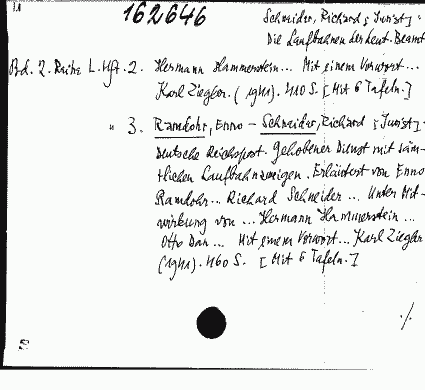 162646
Schneider, Richard [Jurist]:
Die Laufbahnen der deut. Beamt
Bd. 2. Reihe L. Hft. 2. Hermann Hammerstein... Mit einem Vorwort...
Karl Ziegler. (1941). 410 S. [Mit 6 Tafeln.]
" 3. Ramdohr, Enno - Schneider, Richard [Jurist]:
Deutsche Reichspost. Gehobener Dienst mit säm-
tlichen Laufbahnzweigen. Erläutert von Enno
Ramdohr... Richard Schneider... Unter Mit-
wirkung von ... Hermann Hammerstein ...
Otto Dan... Mit einem Vorwort... Karl Ziegler
(1941). 460 S. [Mit 6 Tafeln.]
./.